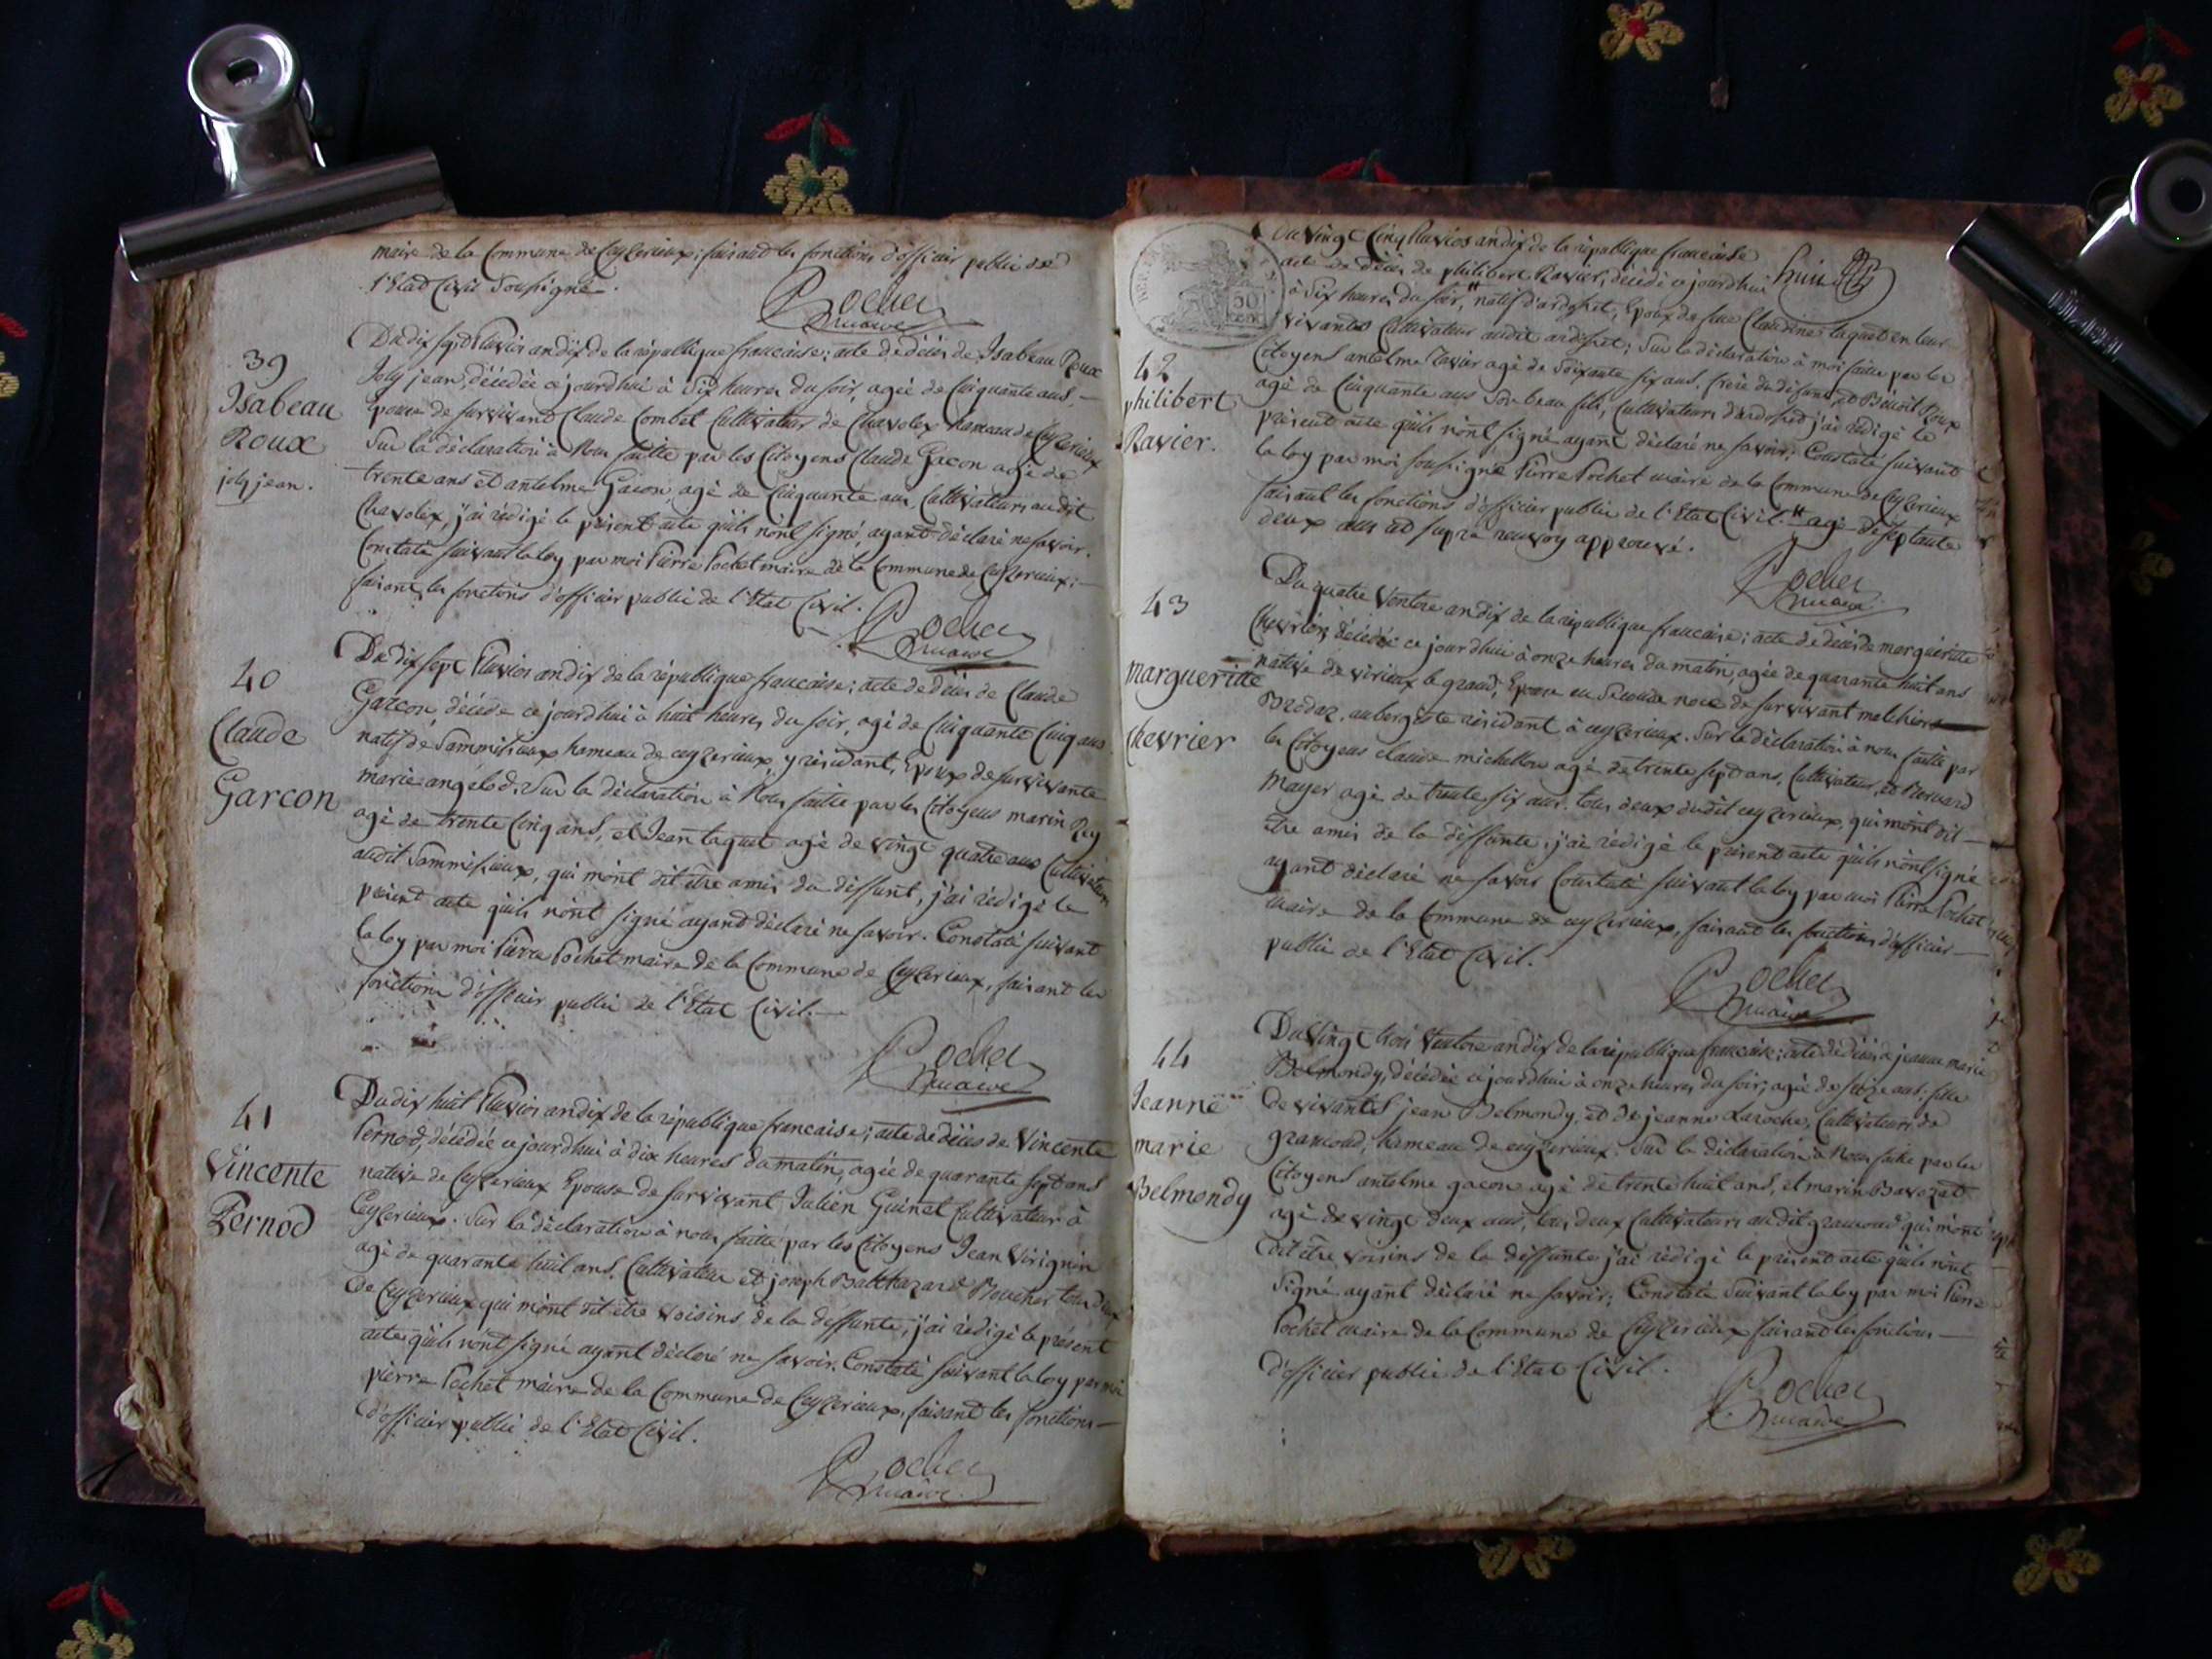 maire de la Commune de Ceyzerieux; faisant les fonctions d'officier public de
l'Etat Civil Soussigné.
Pochet
maire
39
Isabeau
Roux
joly jean.
Du dix sept Pluvios an dix de la république francaise; acte de décès de Isabeau Roux
Joly jean, décédée cejourdhui à Six heures du soir, agée de Cinquante ans,
Epouse de survivant Claude Combet Cultivateur de Chavolex hameau de Ceyzerieux
Sur la déclaration à Nous faitte par les Citoyens Claude Gacon agé de
trente ans et antelme Gacon agé de Cinquante ans Cultivateurs audit
Chavolex, j'ai rédigé le présent acte qu'ils n'ont signé, ayant déclaré ne savoir.
Constaté suivant la loy par moi Pierre Pochet maire de la Commune de Ceyzerieux;
faisant les fonctions d'officier public de l'Etat Civil.
Pochet
maire
40
Claude
Garcon
Du dix sept Pluvios an dix de la république francaise; acte de décès de Claude
Garcon, décédé ce jourdhui à huit heures du soir, agé de Cinquante Cinq ans
natif de Sammisieux hameau de ceyzerieux, y résidant, Epoux de survivante
marie angélod. Sur la déclaration à Nous faitte par les Citoyens marin Rey
agé de trente Cinq ans, et Jean taquet agé de vingt quatre ans Cultivateurs
audit Sammisieux, qui m'ont dit être amis du deffunt, j'ai rédigé le
présent acte qu'ils n'ont signé ayant déclaré ne savoir. Constaté suivant
la loy par moi Pierre Pochet maire de la Commune de Ceyzerieux, faisant les
fonctions d'officier public de l'Etat Civil.
Pochet
maire
41
Vincente
Pernod
Du dix huit Pluvios an dix de la république francaise; acte de décès de Vincente
Pernod, décédée cejourdhui à dix heures du matin, agée de quarante sept ans
native de Ceyzerieux Epouse de survivant Julien Guinet Cultivateur à
Ceyzerieux. Sur la déclaration à nous faitte par les Citoyens Jean Virignin
agé de quarante huit ans, Cultivateur et joseph Balthazard Boucher tous deux
de Ceyzerieux qui m'ont dit être voisins de la deffunte, j'ai rédigé le présent
acte qu'ils n'ont signé ayant déclaré ne savoir. Constaté suivant la loy par moi
pierre Pochet maire de la Commune de Ceyzerieux, faisant les fonctions
d'officier public de l'Etat Civil.
Pochet
maire
50
cent
huit
42
philibert
Ravier.
Du Vingt Cinq Pluvios an dix de la république francaise
acte de décès de philibert Ravier, décédé ce jourdhui
à Six heures du soir, # natif d'ardosset, Epoux de feue Claudine taquet en leur
vivantes Cultivateur audit ardosset; Sur la déclaration à moi faitte par les
Citoyens antelme Ravier agé de Soixante six ans, frère du défunt, et Bénoit Roux
agé de Cinquante ans Son beau fils, Cultivateurs d'ardosset j'ai rédigé le
présent acte qu'ils n'ont signé ayant déclaré ne savoir; Constaté suivant
la loy par moi soussigné Pierre Pochet maire de la Commune de Ceyzerieux
faisant les fonctions d'officier public de l'Etat Civil. # agé de septante
deux ans ut supra renvoy approuvé.
Pochet
maire
43
margueritte
chevrier
Du quatre Ventose an dix de la république francaise; acte de décès de margueritte
Chevrier, décédée ce jourdhui à onze heures du matin, agée de quarante huit ans
native de virieux le grand, Epouse en Seconde noce de survivant melchior
Brodaz, aubergiste résidant à ceyzerieux. Sur la déclaration à nous faitte par
les Citoyens claude michellon agé de trente sept ans, Cultivateur, et Bernard
Mayer agé de trente six ans, tous deux dudit ceyzerieux, qui m'ont dit
être amis de la deffunte, j'ai rédigé le présent acte qu'ils n'ont signé
ayant déclaré ne savoir Constaté suivant la loy par moi Pierre Pochet
maire de la Commune de ceyzerieux, faisant les fonctions d'officier
public de l'Etat Civil.
Pochet
maire
44
Jeanne
marie
Belmondy
Du Vingt trois Ventose an dix de la république francaise; acte de décès de jeanne marie
Belmondy, décédée cejourdhui à onze heures du soir, agée de seize ans, fille
de vivants jean Belmondy, et de jeanne Laroche, Cultivateurs de
gramond, hameau de ceyzerieux. Sur la déclaration à Nous faite par les
Citoyens antelme gacon agé de trente huit ans, et marin Bavozat
agé de vingt deux ans, tous deux Cultivateurs audit gramond qui m'ont
dit être voisins de la deffunte j'ai rédigé le présent acte qu'ils n'ont
Signé ayant déclaré ne savoir; Constaté Suivant la loy par moi Pierre
Pochet maire de la Commune de Ceyzerieux faisant les fonctions
d'officier public de l'Etat Civil.
Pochet
maire